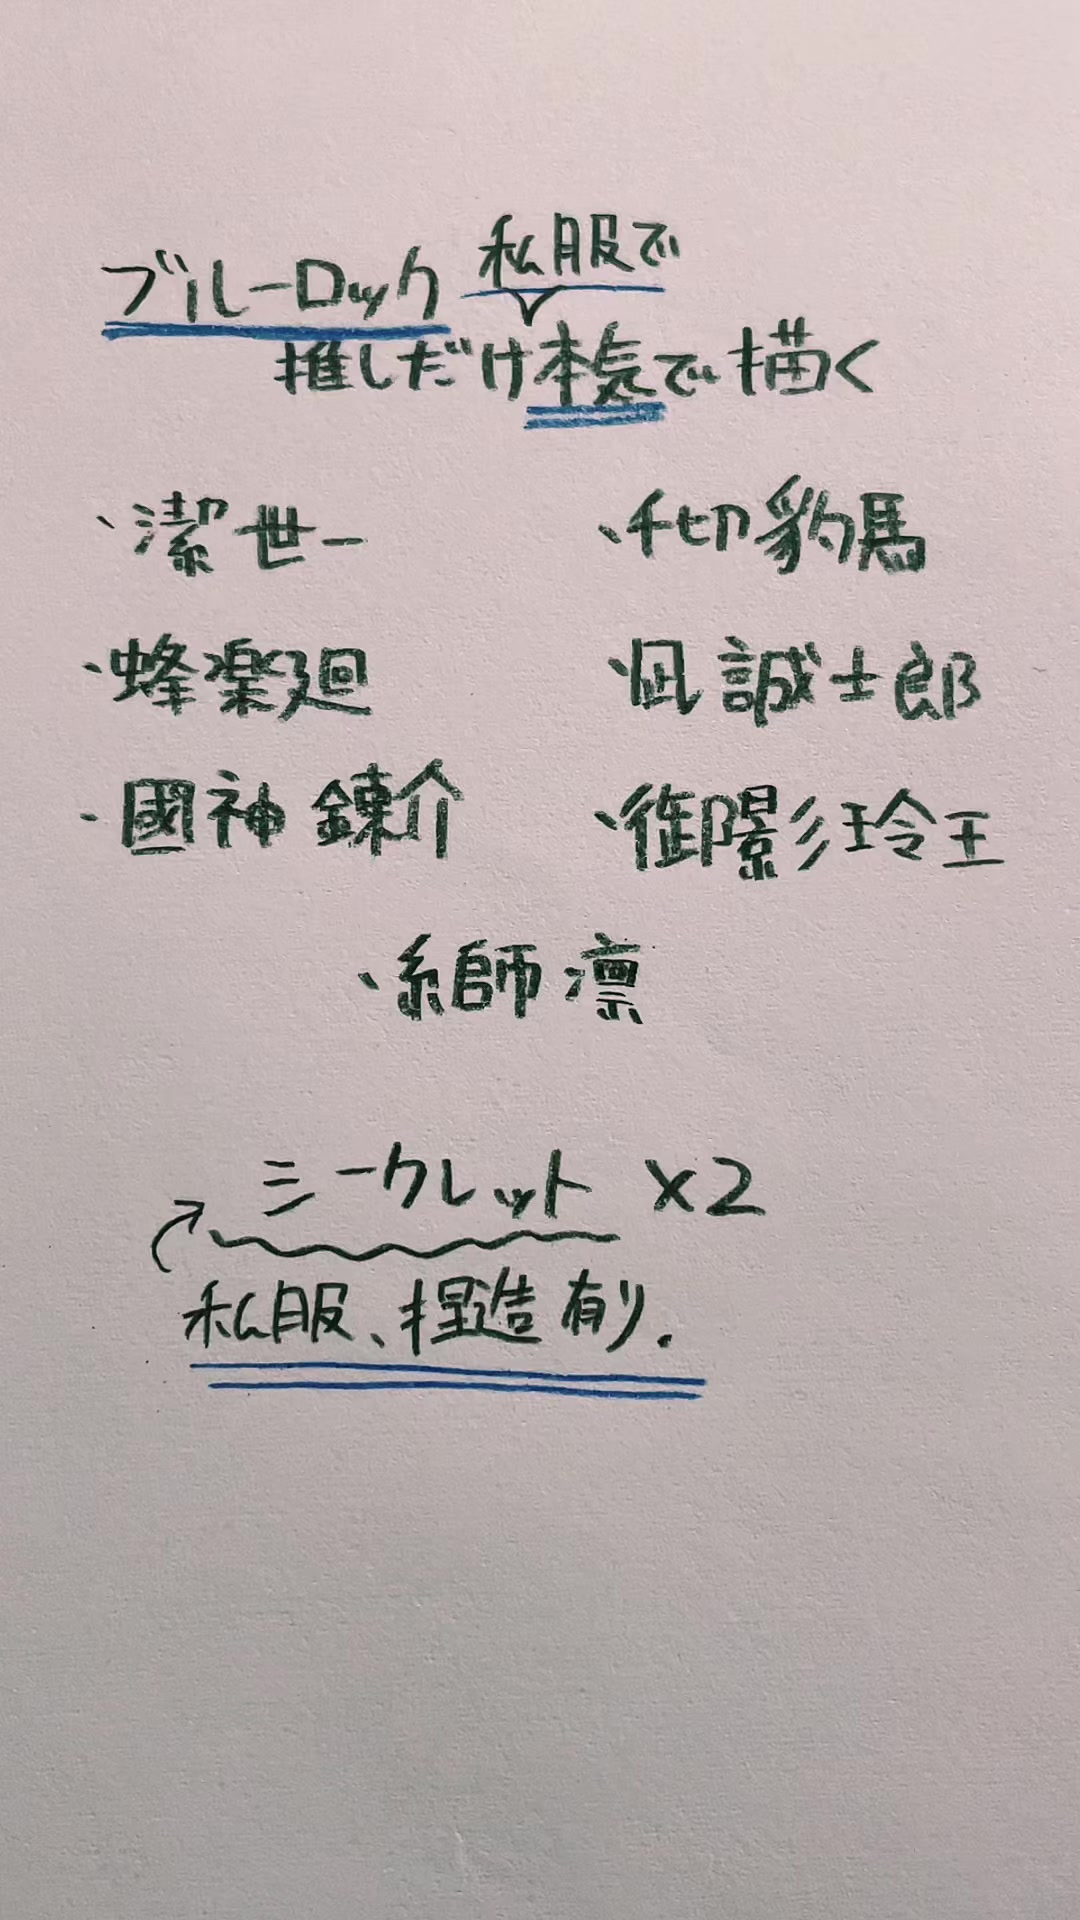 ブルーロック 私服で
推しだけ本気で描く
・潔世一
・千切豹馬
・蜂楽廻
・凪誠士郎
・國神錬介
・御影玲王
・糸師凛
シークレット ×2
私服、捏造有り.